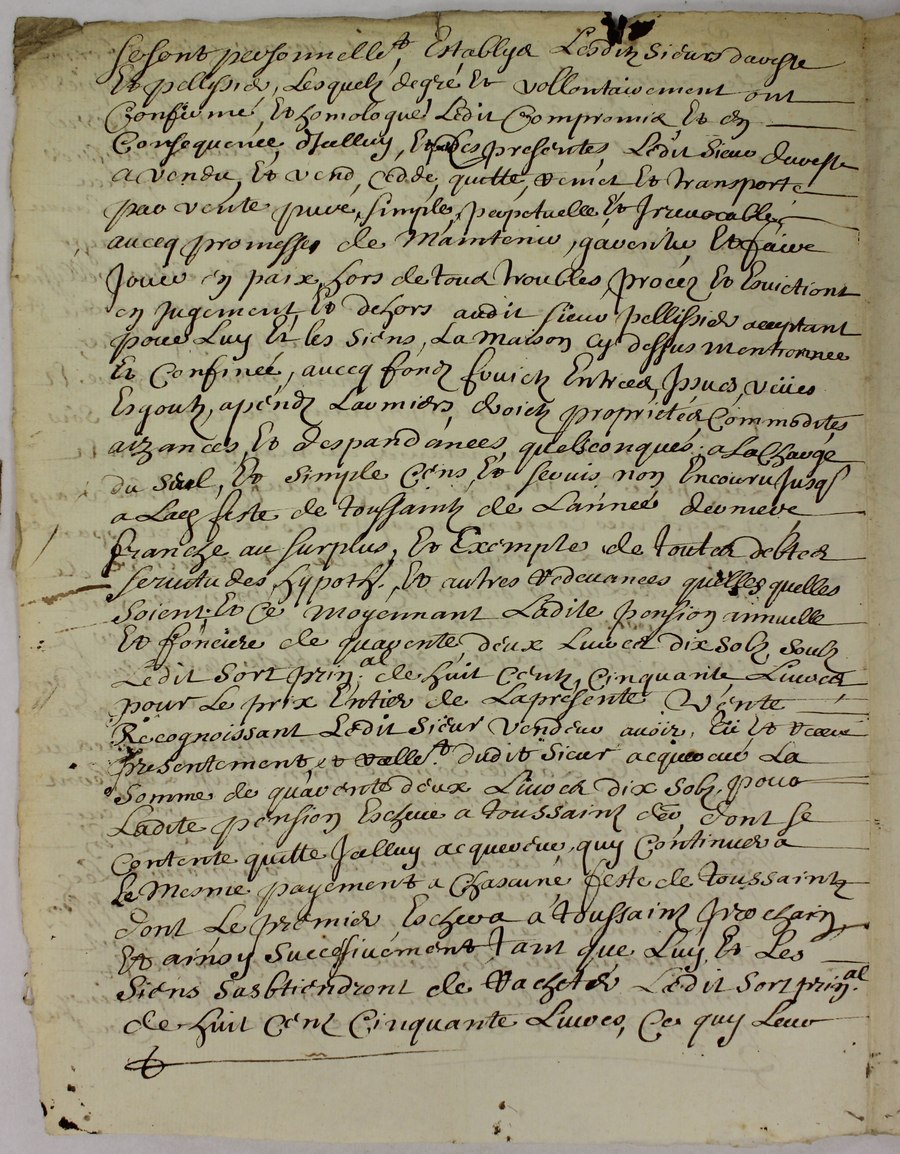 se sont personnellet, Establys Lesditz Sieurs daveste
Et pellissier, Lesquelz degré Et vollontairement ont
Confirmé, Et homologué Ledit Compromis Et en
Consequence d'Jcelluy, Et par ces presentes, Ledit Sieur daveste
a vendu, Et vend, cedde, quitte, remet Et transporte
par vente pure, simple, perpetuelle Et Jrrevocable,
avecq promesses de Maintenir, garentir, Et faire
Jouir en paix, hors de tous troubles, procez Et Evictions
en Jugement, Et dehors audit sieur pellissier acceptant
pour Luy Et les siens, La maison cy dessus mentionnée
Et Confinée, avecq fondz fruictz Entrées Jssues, veües
Esgoutz, apendz Larmiers, droictz proprietés Commodités
aizances, Et despandances, quelsconques; a La Charge
du Seul, Et simple Cens, Et servis, non Encouru Jusqs
a La feste de toussaintz de Lannée derniere
franche au surplus, Et Exempte de toutes debtes
servitudes, hypoth., Et autres redevances quelles quelles
soient; Et Ce moyennant Ladite pension annuelle
Et fonciere de quarente deux Livres dix solz, soubz
Ledit sort prin.al de huit Centz, Cinquante Livres
pour Le prix Entier de La presente Vente
Recognoissant Ledit Sieur Vendeur avoir, Eü Et receu
presentement et reellet. dudit Sieur acquereur La
somme de quarente deux Livres dix solz, pour
Ladite pension Escheue a toussaintz dont se
contente quitte Jcelluy acquereur, quy Continuera
Le Mesme payement a Chascune feste de toussaintz
dont Le premier Eschera à toussaint prochain,
Et ainsy successivement, tant que Luy Et Les
Siens sasbtiendront de Rachetér Ledit Sort prin.al
de huit Centz Cinquante Livres, Ce quy Leur